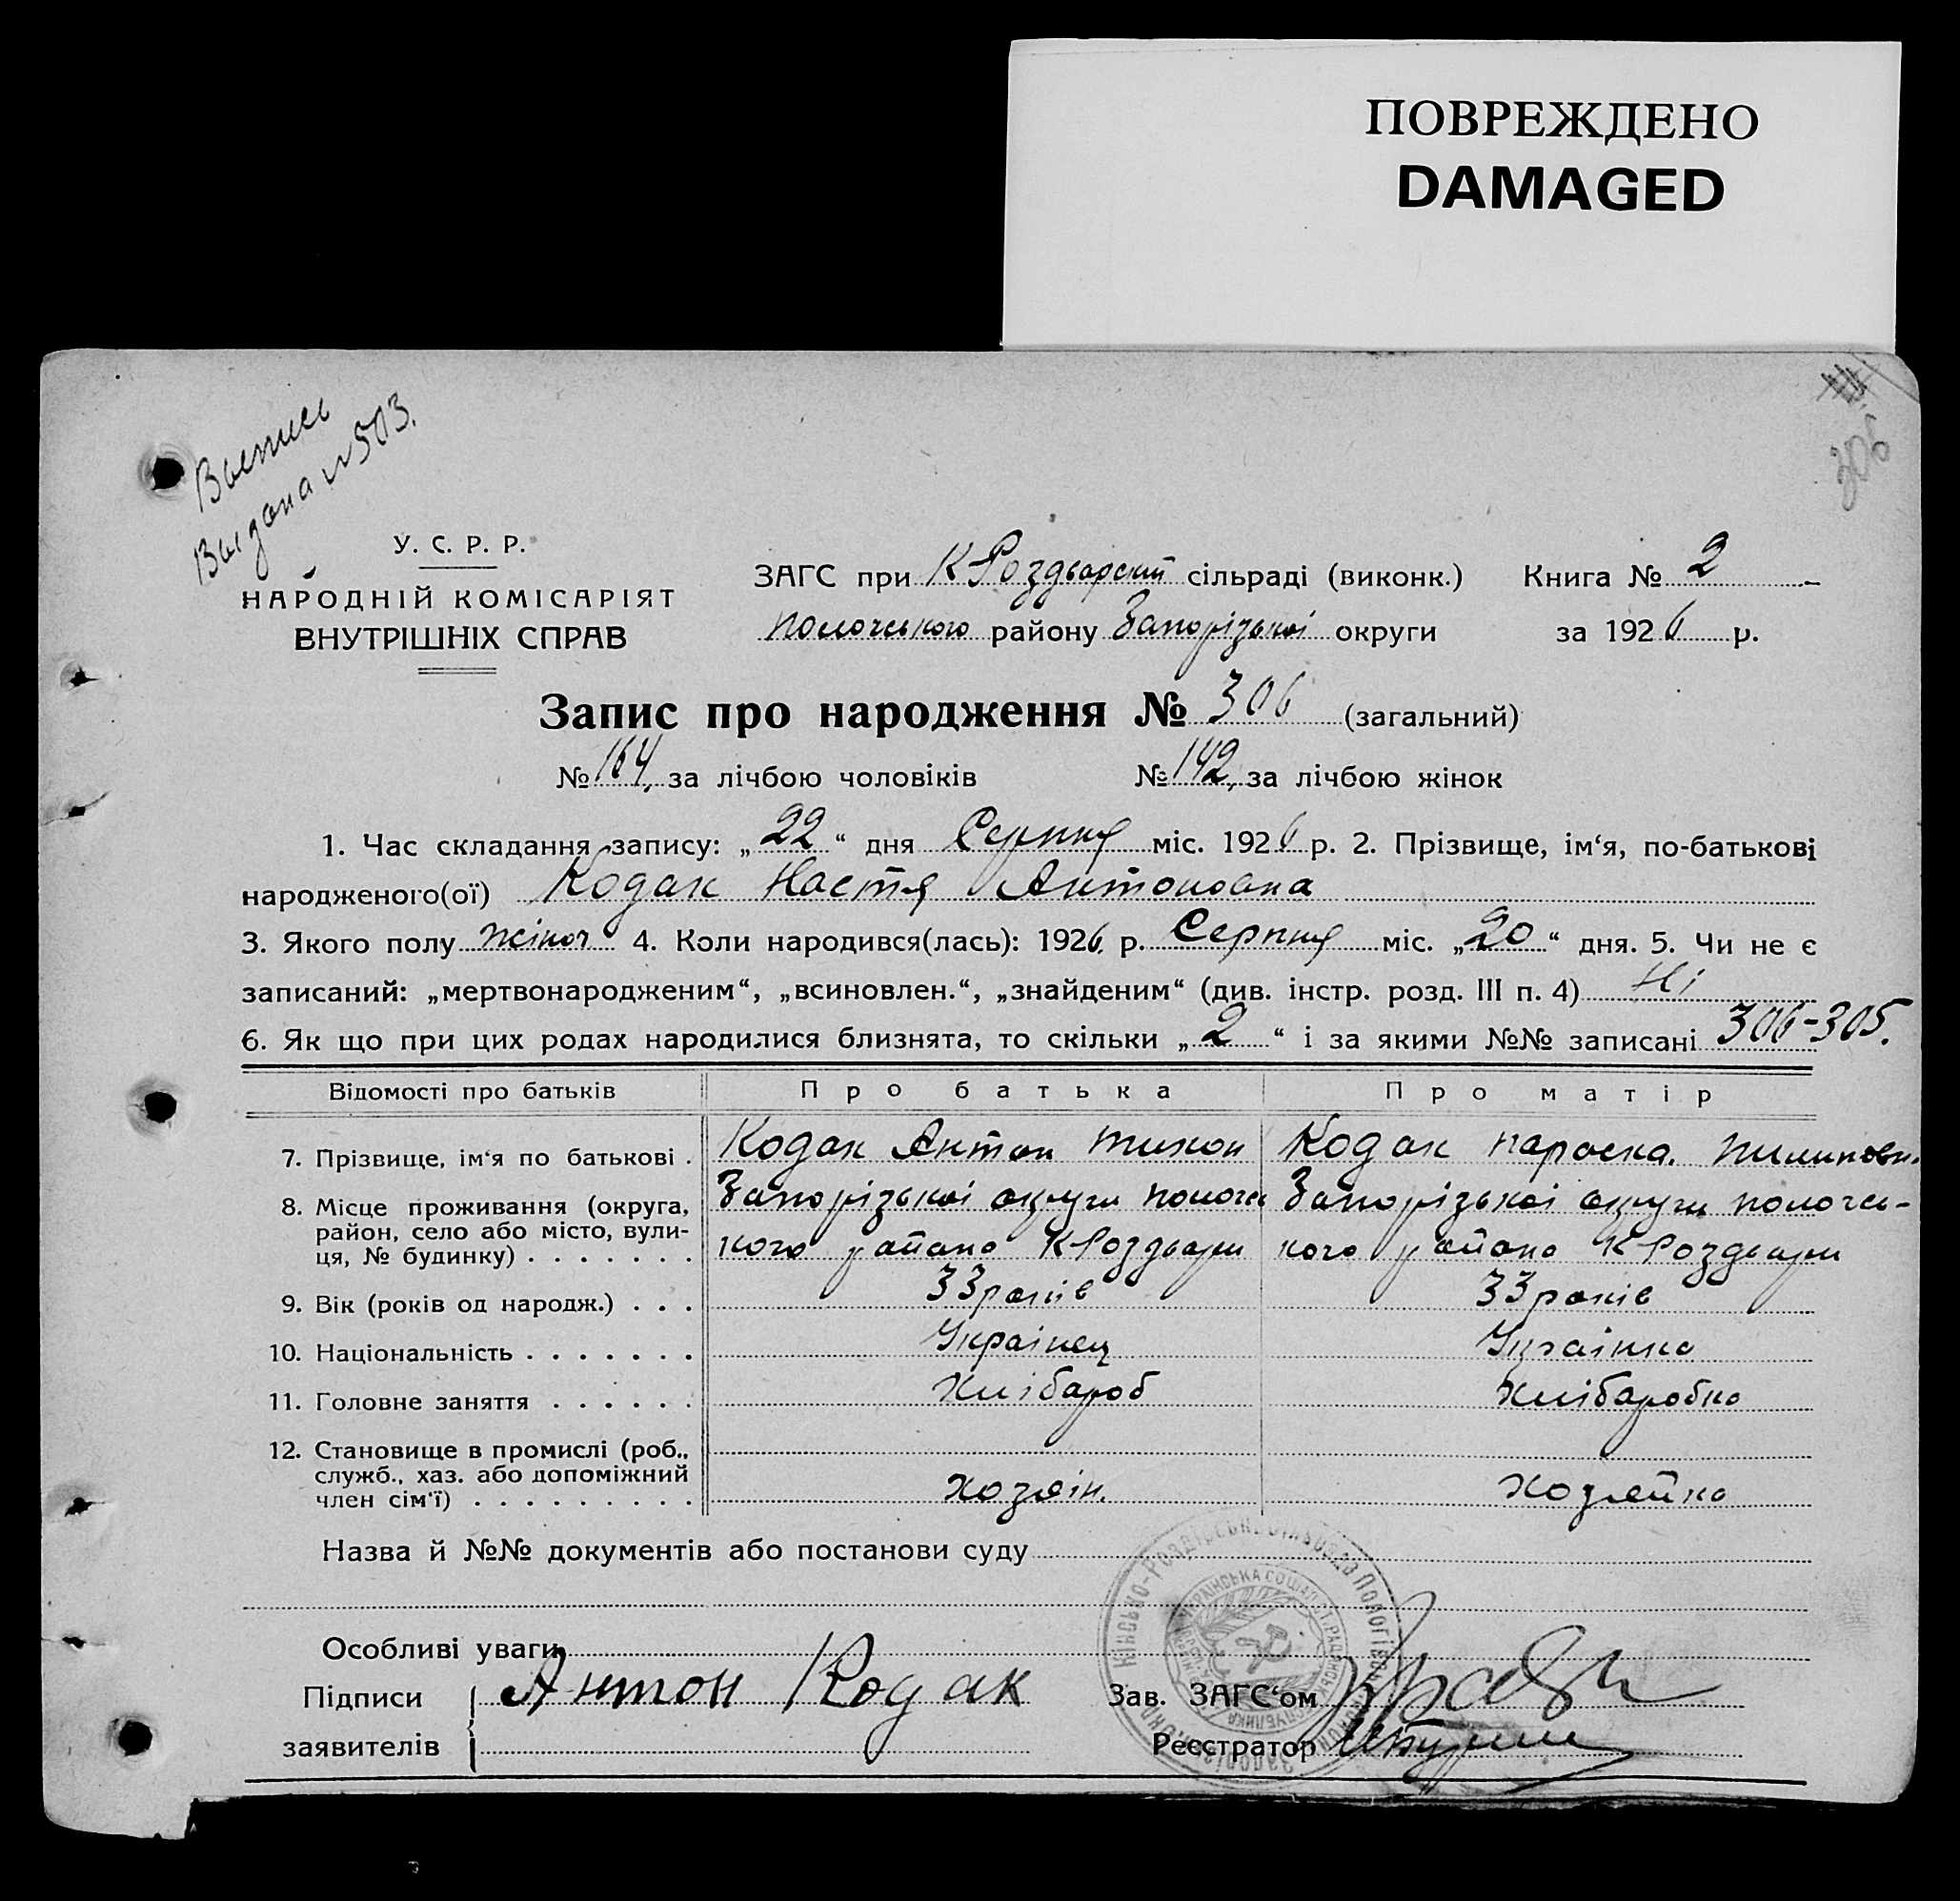 ПОВРЕЖДЕНО
DAMAGED
306
Выпись
Выдана №503.
У. С. Р. Р.
НАРОДНІЙ КОМІСАРІЯТ
ВНУТРІШНІХ СПРАВ
ЗАГС при К Роздворскій сільраді (виконк.) Книга № 2
пологського району Запорізькоі округи за 1926 р.
Запис про народження № 306 (загальний)
№ 164, за лічбою чоловіків № 142, за лічбою жінок
1. Час складання запису: „22“ дня Серпня міс. 1926 р. 2. Прізвище, ім‘я, по-батькові
народженого(ої) Кодак Настя Антоновна
3. Якого полу жіноч 4. Коли народився(лась): 1926. р. Серпня міс. „20“ дня. 5. Чи не є
записаний: „мертвонародженим“, „всиновлен.“, „знайденим“ (див. інстр. розд. III п. 4) Ні
6. Як що при цих родах народилися близнята, то скільки „2“ і за якими №№ записані 306-305.
Відомості про батьків Про батька Про матір
7. Прізвище, ім‘я по батькові . Кодак Антон тихон Кодак параска. пилиповн.
8. Місце проживання (округа, район, село або місто, вулиця, № будинку) . . . . . . .
Запорізькоі округи пологсь Запорізькоі округи пологсь-
кого района К Роздвори кого района К Роздвори
9. Вік (років од народж.) . . . 33 років 33 років
10. Національність . . . . . . . Украінец Украінка
11. Головне заняття . . . . . . Хлібароб Хлібаробка
12. Становище в промислі (роб., служб., хаз. або допоміжний член сім‘ї) . . . . . . . . . хозяін. хозяйка
Назва й №№ документів або постанови суду
Особливі уваги
Підписи заявителів Антон Кодак
Зав. ЗАГС‘ом
Реєстратор